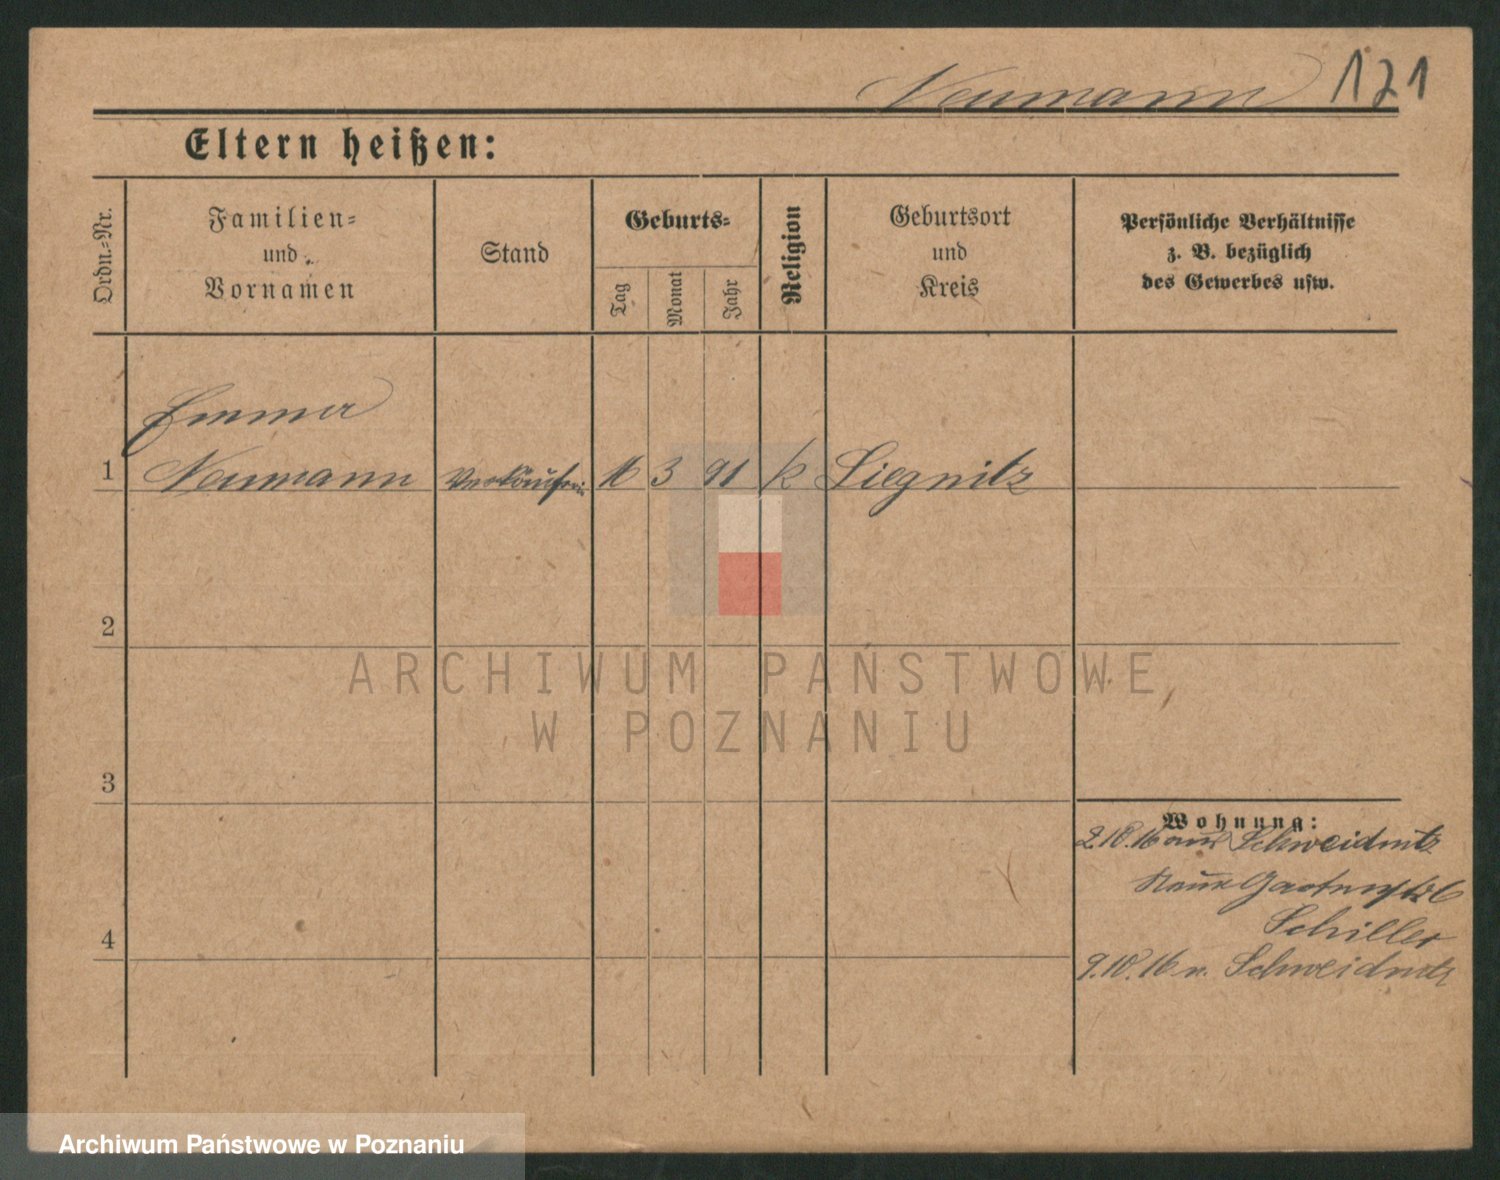 Neumann 121
Eltern heißen:
Ordn.-Nr.
Familien-
und
Vornamen
Stand
Geburts-
Tag
Monat
Jahr
Religion
Geburtsort
und
Kreis
Persönliche Verhältnisse
z. B. bezüglich
des Gewerbes usw.
Emma
1 Neumann Verkäuferin 16 3 91 k Liegnitz
2
3
4
Wohnung:
2.10.16 aus Schweidnitz
Neue Gartenstr
Schiller
9.10.16 n. Schweidnitz
ARCHIWUM PAŃSTWOWE
W POZNANIU
Archiwum Państwowe w Poznaniu